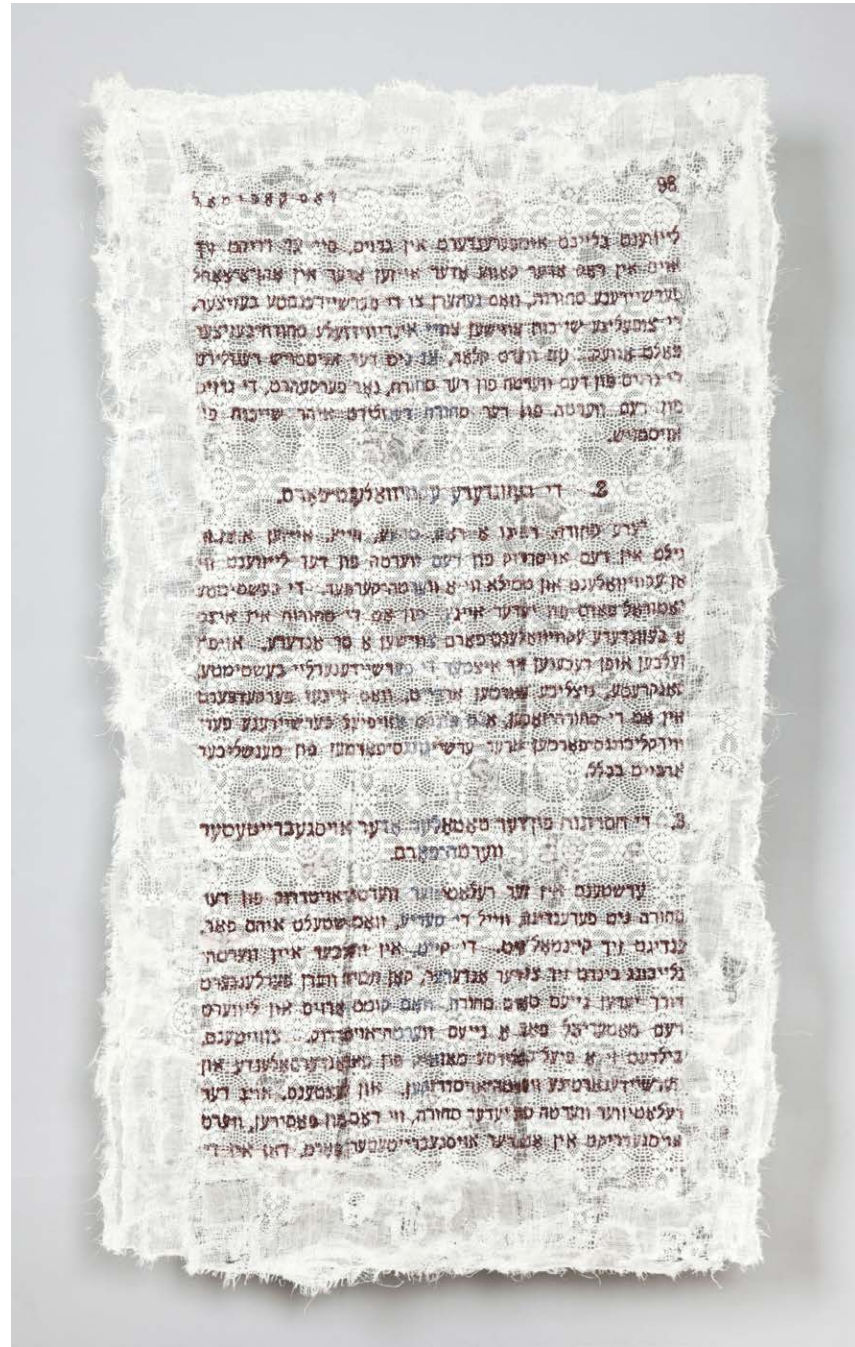 98 ד א ס ק א פ י ט א ל
לייווענט בלייבט אומפערענדערט אין גרויס, סיי זי דריקט זיך
אויס אין ראק אדער קאווע אדער אייזען אדער אין
פערשיידענע סחורות, וואס געהערן צו די פערשיידענסטע בעזיצער.
די צופעליגע שייכות צווישען צוויי אינדיווידועלע סחורה־בעזיצער
פאלט אוועק. עס ווערט קלאר, אז ניט דער אויסטויש רעגולירט
די גרויס פון דעם ווערטה פון דער סחורה, נאר פערקעהרט, די גרויס
פון דעם ווערטה פון דער סחורה רעגולירט איהר שייכות פון
אויסטויש.
2. די בעזונדערע עקוויוואלענט־פארם.
יעדע סחורה, ראק, ווייץ, אייזען א. א. וו.
גילט אין דעם אויסדרוק פון דעם ווערטה פון דער לייווענט ווי
אן עקוויוואלענט און ממילא ווי א ווערטה־קערפער. די בעשטימטע
נאטוראל־פארם פון יעדער איינער פון אט די סחורות איז איצט
א בעזונדערע עקוויוואלענט־פארם צווישען א סך אנדערע. אויפ׳ן
זעלבען אופן רעכענען זיך איצטער די פערשיידענערליי בעשטימטע,
קאנקרעטע, ניצליכע ארבייט, וואס זיינען פערקערפערט
אין אט די סחורה־זאכען, אויפיעל פערשיידענע פער־
ווירקליכונגס־פארמען אדער ערשיינונגס־פארמען פון מענשליכער
ארבייט בכלל.
3. די חסרונות פון דער טאטאלער אדער אויסגעברייטעטער
ווערטה־פארם.
ערשטענס איז דער רעלאטיווער ווערטה־אויסדרוק פון דער
סחורה ניט פערענדיגט, ווייל די סעריע, וואס שטעלט איהם פאר,
ענדיגט זיך קיינמאל ניט. די קייט, אין וועלכער איין ווערטה־
גלייכונג בינדט זיך צו דער אנדערער, קאן ווערן פערלענגערט
דורך יעדען נייעם סארט סחורה, וואס קומט ארויס און ליווערט
דעם מאטעריאל פאר א נייעם ווערטה־אויסדרוק. צווייטענס,
בילדעט זי א מאזאיק פון און
פערשיידענארטיגע ווערטה־אויסדרוקען. און לעצטענס, אויב דער
רעלאטיווער ווערטה פון יעדער סחורה, ווי דאס מוז פאסירען, ווערט
אויסגעדריקט אין אט דער אויסגעברייטעטער פארם, דאן איז די